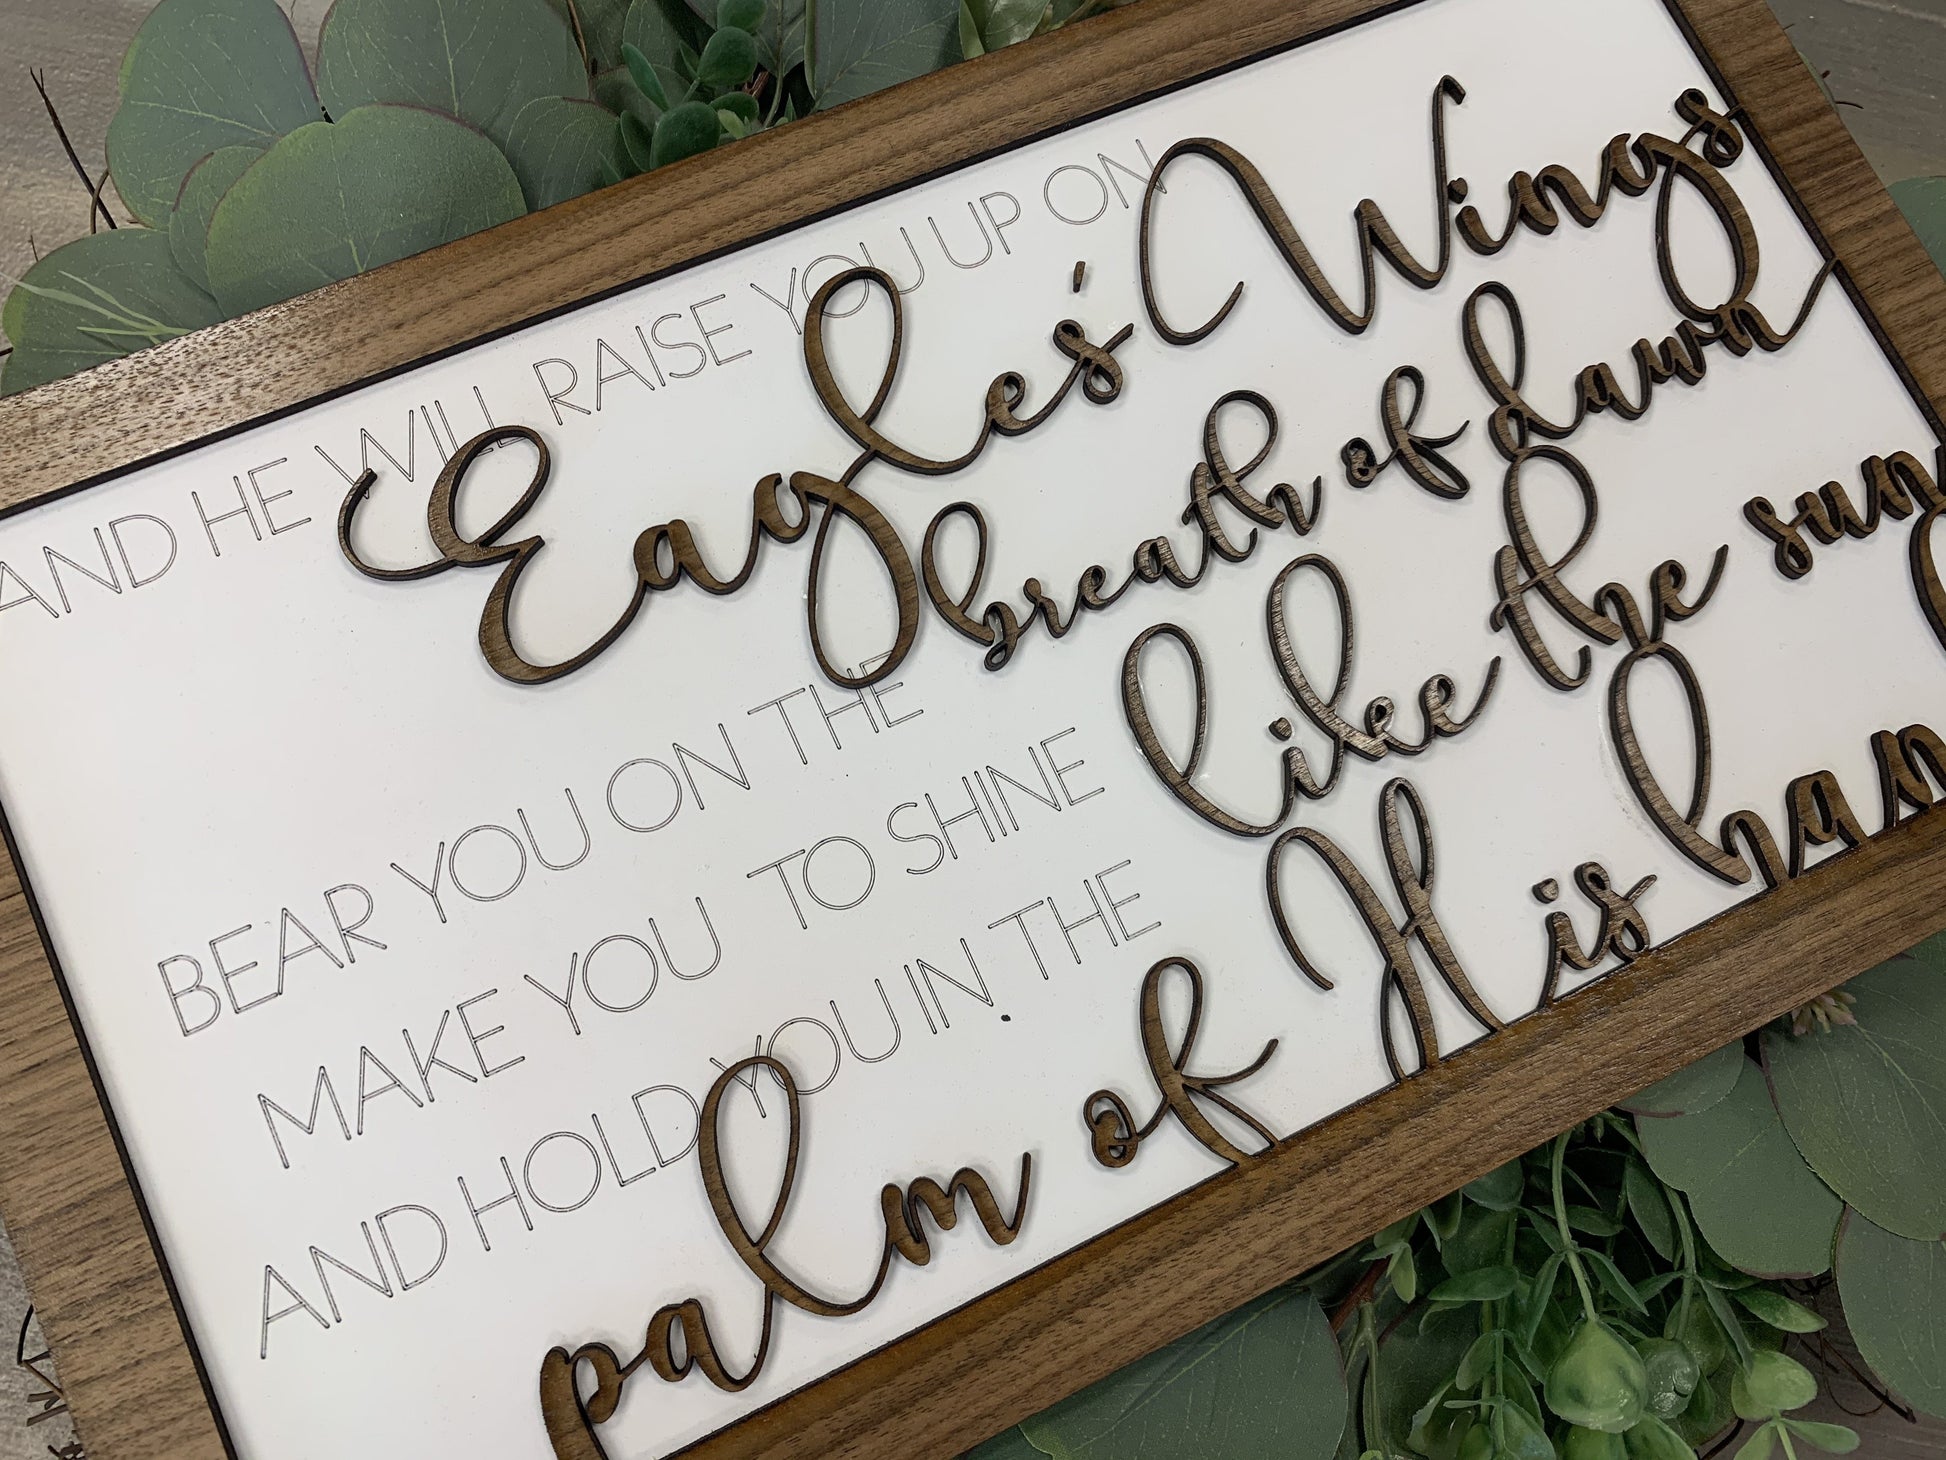 AND HE WILL RAISE YOU UP ON
Eagles' Wings
BEAR YOU ON THE breath of dawn
MAKE YOU TO SHINE like the sun
AND HOLD YOU IN THE
palm of His han